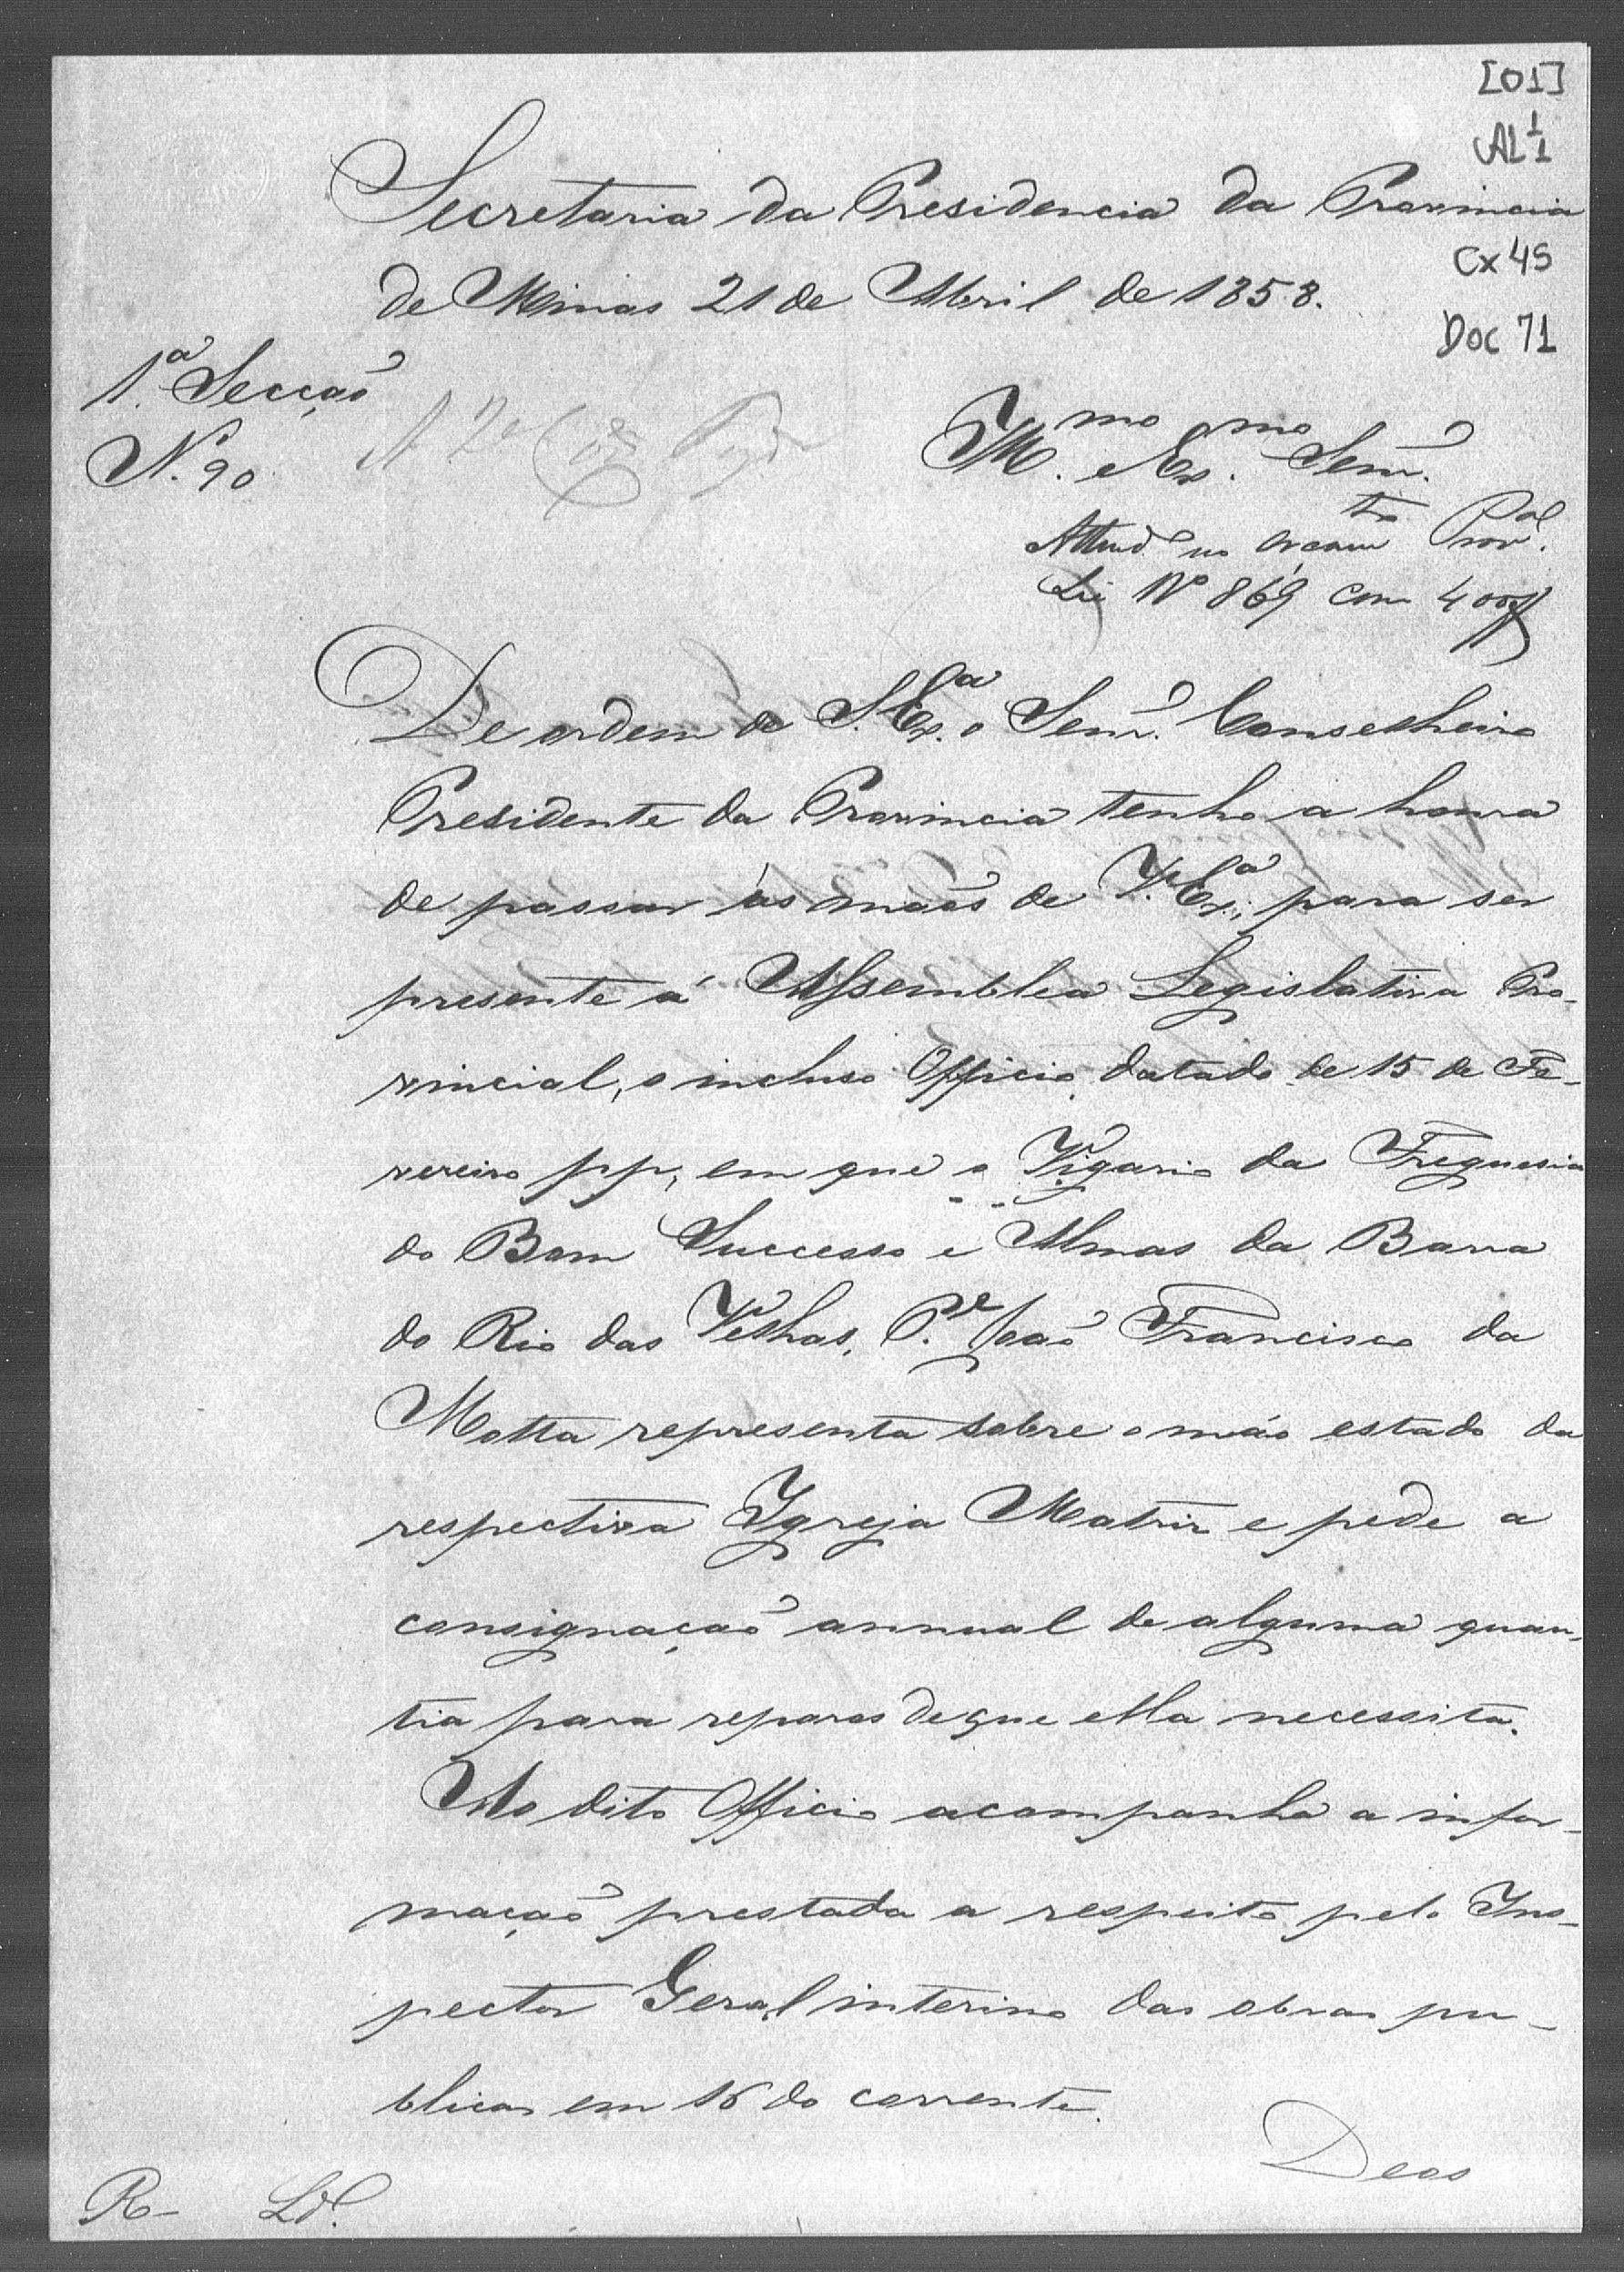 [01]
AL 1 1
Secretaria da Presidencia da Provincia
Cx 45
de Minas 21 de Abril de 1858.
Doc 71
1.ª Secção
N.º 90
Ill.mo e Ex.mo Senr.
Attend.º no orcam.to Prov.al
Lei Nº 869 com 400$
De ordem de S. Ex.ª o Senr. Conselheiro
Presidente da Provincia tenho a honra
de passar ás mãos de V. Ex.ª, para ser
presente á Assemblea Legislativa Pro-
vincial, o incluso Officio datado de 15 de Fe-
vereiro pp, em que o Vigario da Freguesia
do Bom Successo e Almas da Barra
do Rio das Velhas, P.e João Francisco da
Motta representa sobre o máo estado da
respectiva Igreja Matriz e pede a
consignação annual de alguma quan-
tia para reparos de que ella necessita.
Ao dito Officio acompanha a infor-
mação prestada a respeito pelo Ins-
pector Geral interino das obras pu-
blicas em 16 do corrente.
Deos